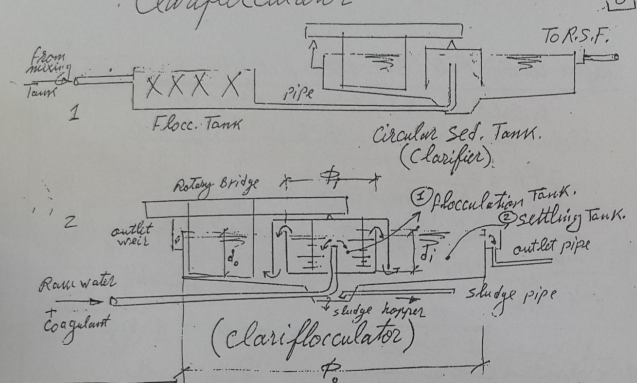 Clariflocculator
To R.S.F.
From
mixing
Tank
pipe
1
Flocc. Tank
Circular Sed. Tank.
(Clarifier)
Rotary Bridge
Φ1
① flocculation Tank.
2
② settling Tank.
outlet
weir
do
di
outlet pipe
Raw water
+
Coagulant
sludge pipe
sludge hopper
(Clariflocculator)
Φo